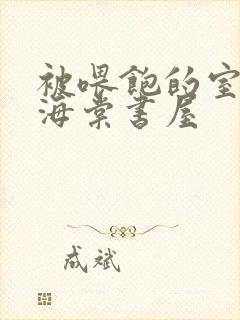 被喂飽的室
海棠書屋
成斌